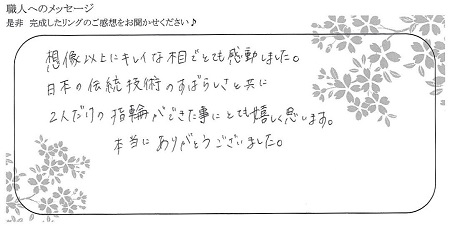 職人へのメッセージ
是非 完成したリングのご感想をお聞かせください♪
想像以上にキレイな相でとても感動しました。
日本の伝統技術のすばらしさと共に
2人だけの指輪ができた事にとても嬉しく思います。
本当にありがとうございました。